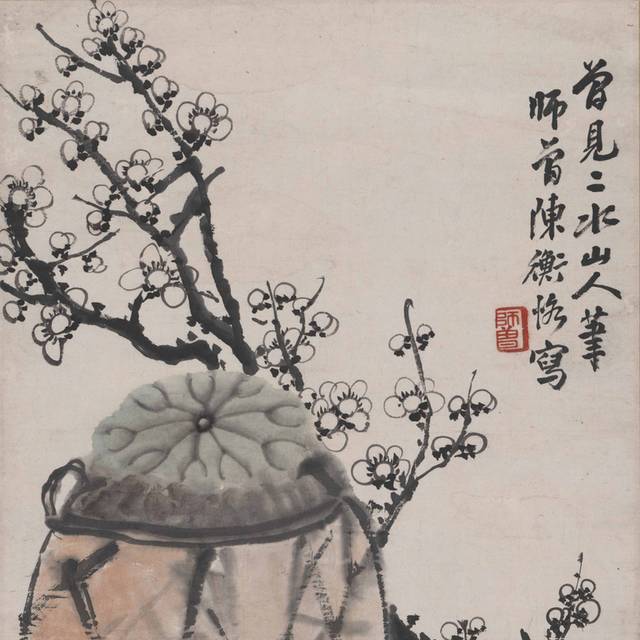 曾見二水山人筆
師曾陳衡恪寫
師曾